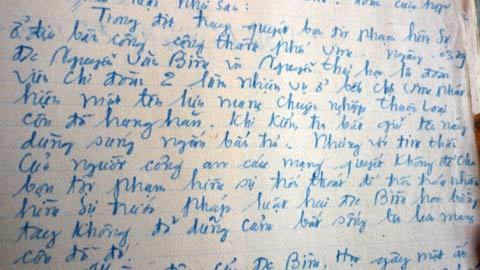 như sau:
Trong đợt truy quyết bọn tội phạm hình sự
ở địa bàn công cộng thành phố Vinh ngày
Đc Nguyễn Văn Bính và Nguyễn Thái học là đoàn
viên Chi đoàn 2 làm nhiệm vụ ở bến chợ Vinh phát
hiện một tên lưu manh chuyên nghiệp thuộc loại
côn đồ hung hãn. Khi kiểm tra bắt giữ tên này
dùng súng ngắn bắn trả. Nhưng với tinh thần
Của người công an cách mạng quyết không để cho
bọn tội phạm hình sự trốn thoát để trả
hình sự trước pháp luật hai đc Bính học bằng
tay không đã dũng cảm bắt sống tên lưu manh
côn đồ đó.
của Đc Bính, Học